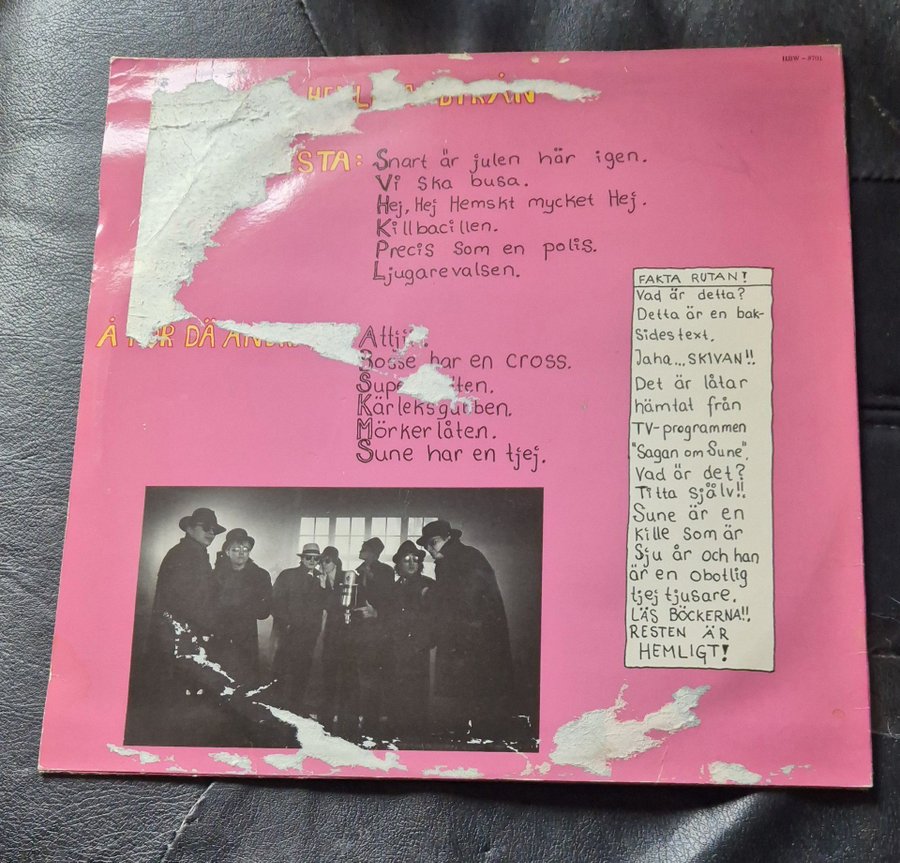 HBW - 8701
STA:
Snart är julen här igen.
Vi ska busa.
Hej, Hej Hemskt mycket Hej.
Killbacillen.
Precis som en polis.
Ljugarevalsen.
Å DÄ
Bosse har en cross.
Kärleksgubben.
Mörkerlåten.
Sune har en tjej.
FAKTA RUTAN!
Vad är detta?
Detta är en bak-
sidestext.
Jaha... SKIVAN!!
Det är låtar
hämtat från
TV-programmen
"Sagan om Sune".
Vad är det?
Titta själv!!
Sune är en
kille som är
Sju år och han
är en obotlig
tjej tjusare.
LÄS BÖCKERNA!!
RESTEN ÄR
HEMLIGT!